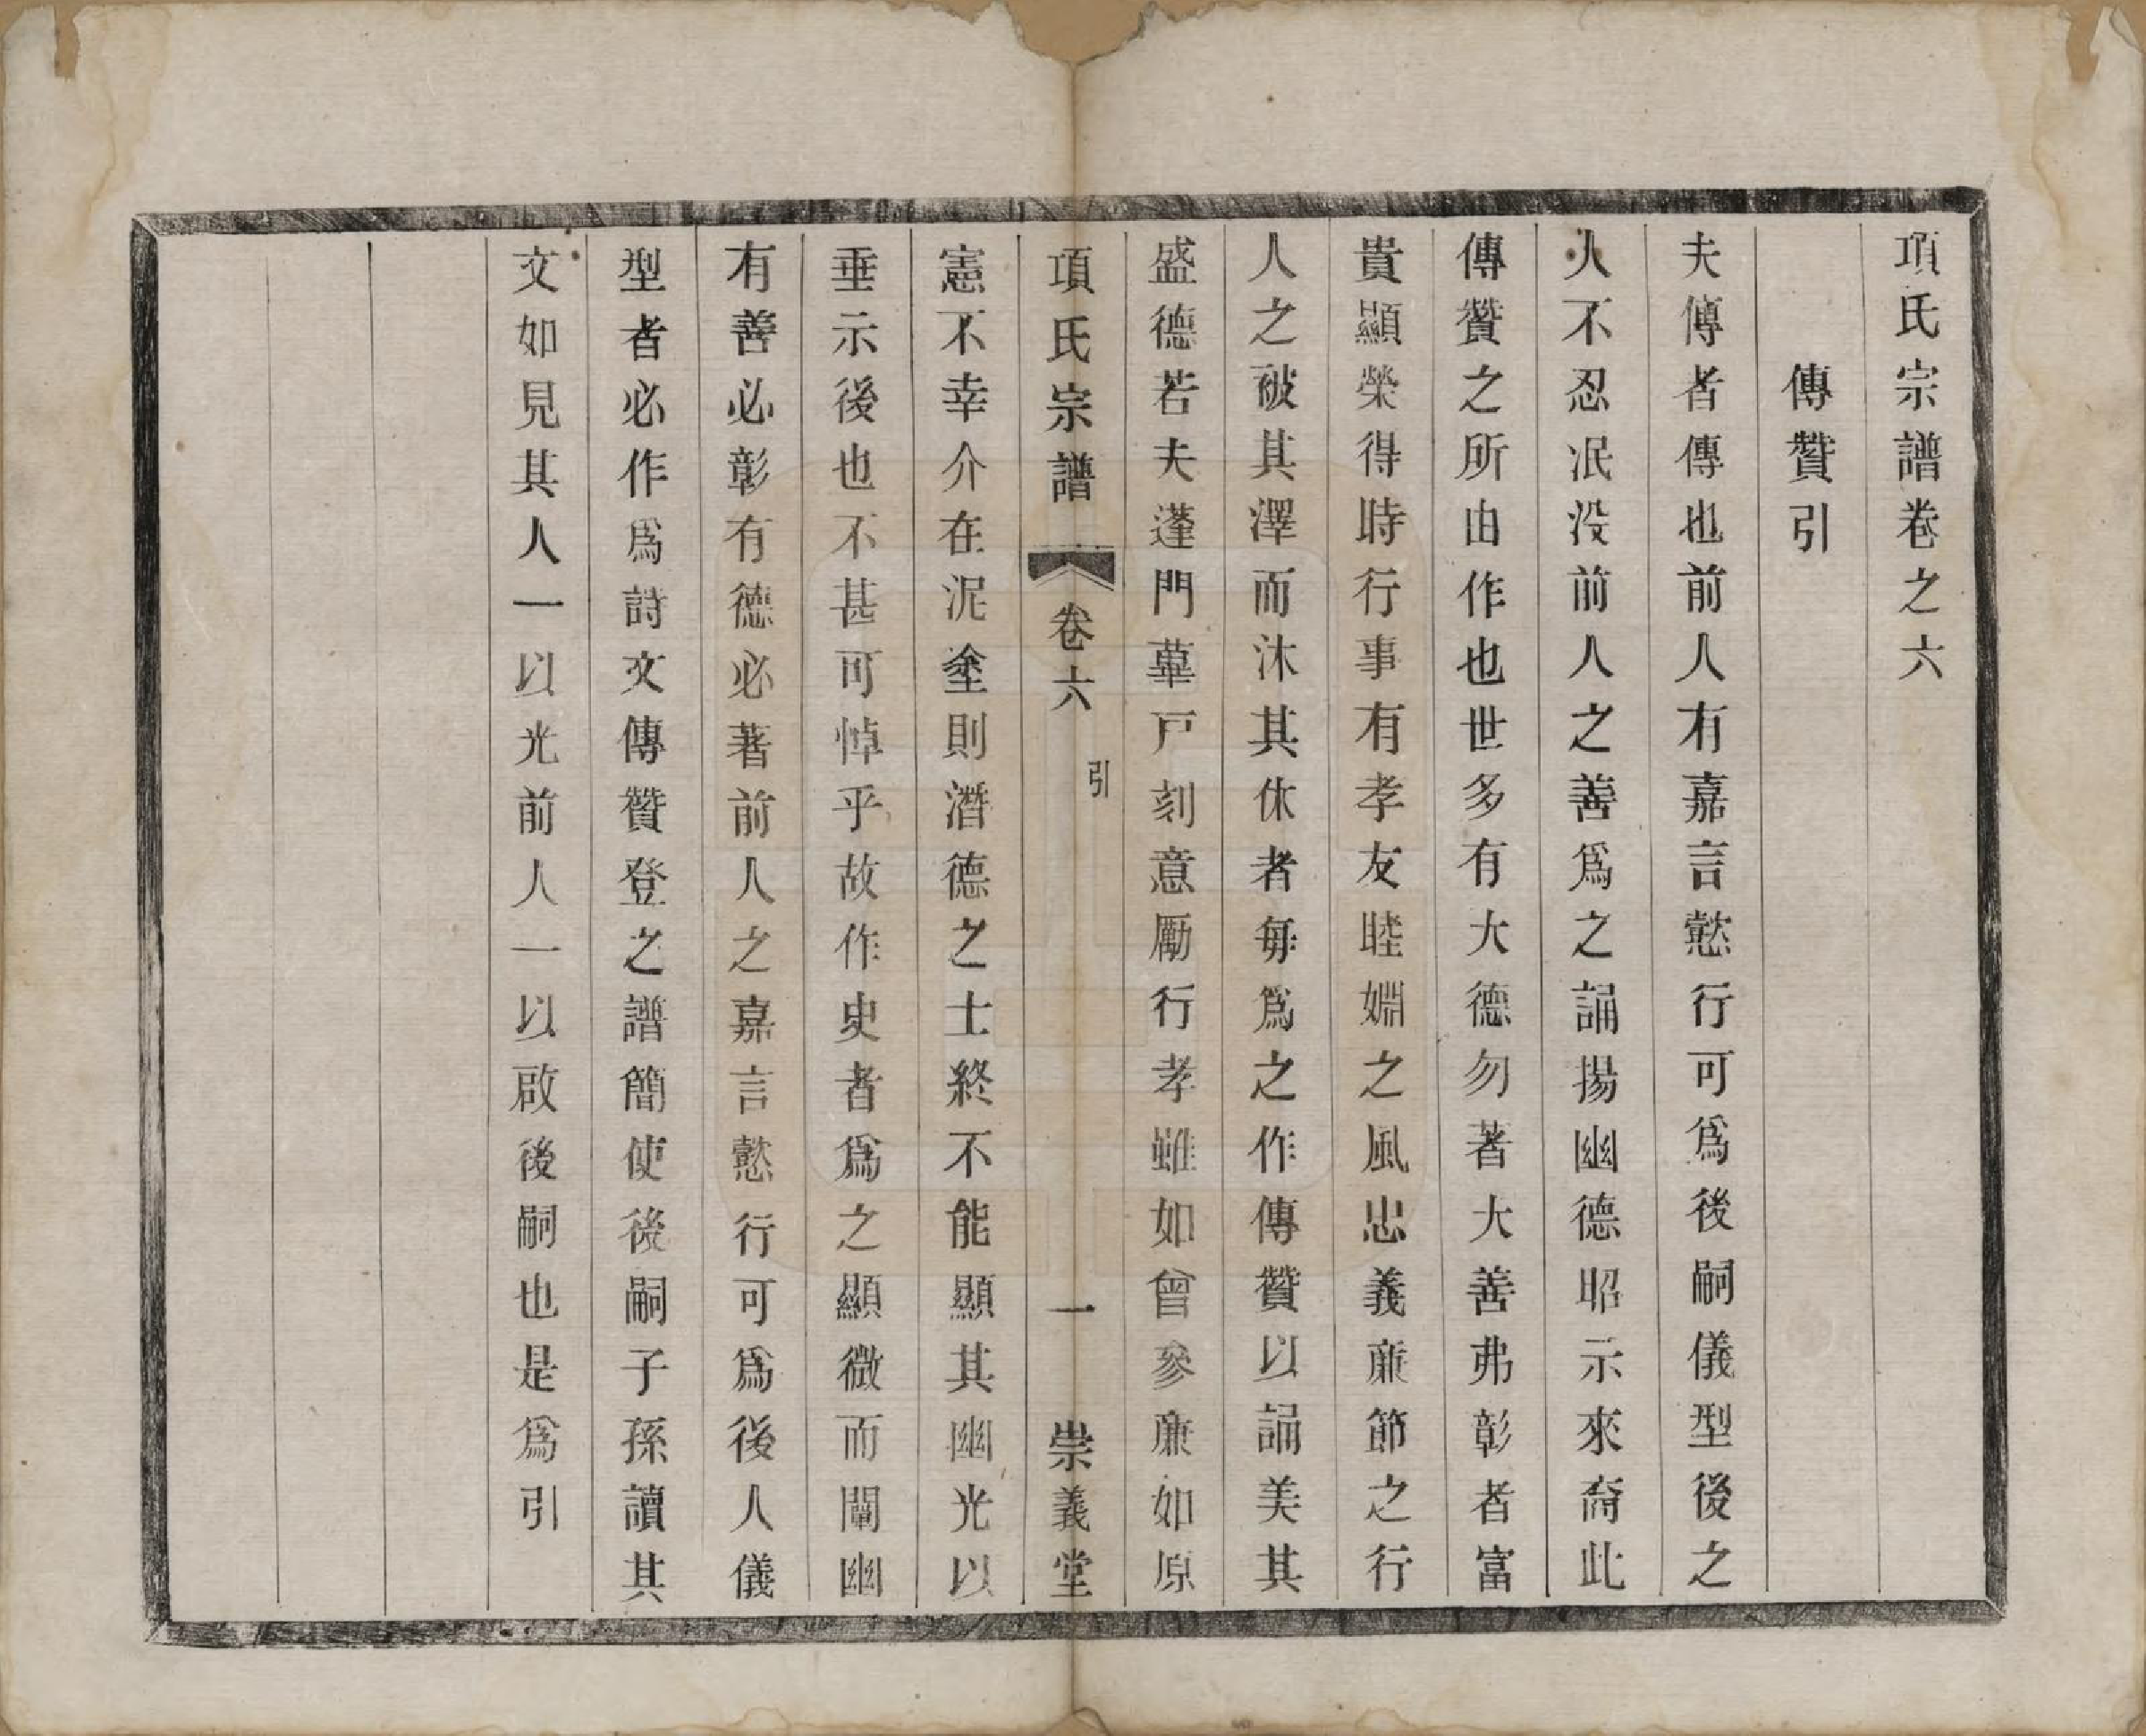 項氏宗譜卷之六
傳贊引
夫傳者傳也前人有嘉言懿行可爲後嗣儀型後之
人不忍泯没前人之善爲之誦揚幽德昭示來裔此
傳贊之所由作也世多有大德勿著大善弗彰者富
貴顯榮得時行事有孝友睦婣之風忠義亷節之行
人之被其澤而沐其休者每爲之作傳贊以誦美其
盛德若夫蓬門蓽戸刻意勵行孝雖如曾參廉如原
項氏宗譜
卷六
引
一
崇義堂
憲不幸介在泥塗則潛德之士終不能顯其幽光以
垂示後也不甚可悼乎故作史者爲之顯微而闡幽
有善必彰有德必著前人之嘉言懿行可爲後人儀
型者必作爲詩文傳贊登之譜簡使後嗣子孫讀其
文如見其人一以光前人一以啟後嗣也是爲引